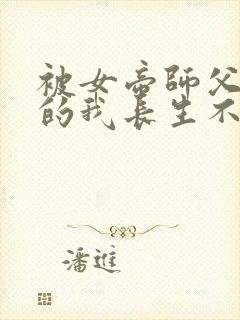 被女帝師父
的我長生不
潘進